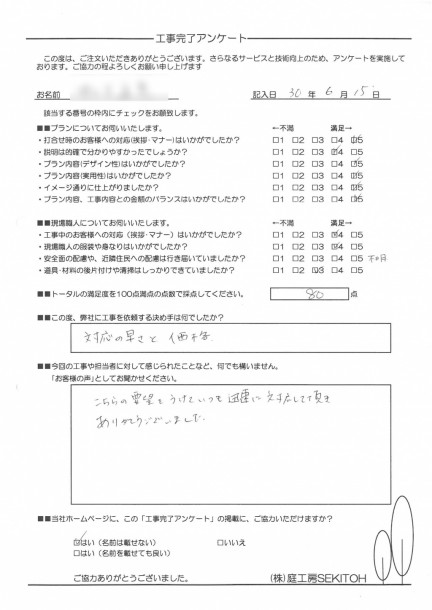 工事完了アンケート
この度は、ご注文いただきありがとうございます。さらなるサービスと技術向上のため、アンケートを実施して
おります。ご協力の程よろしくお願い申し上げます
お名前 記入日 30 年 6 月 15 日
該当する番号の枠内にチェックをお願致します。
■■プランについてお伺いいたします。 ←不満 満足→
・打合せ時のお客様への対応(挨拶・マナー)はいかがでしたか? □1 □2 □3 □4 ☑5
・説明は的確で分かりやすかったでしょうか? □1 □2 □3 ☑4 □5
・プラン内容(デザイン性)はいかがでしたか? □1 □2 □3 □4 ☑5
・プラン内容(実用性)はいかがでしたか? □1 □2 □3 □4 ☑5
・イメージ通りに仕上がりましたか? □1 □2 □3 □4 ☑5
・プラン内容、工事内容との金額のバランスはいかがでしたか? □1 □2 □3 □4 ☑5
■■現場職人についてお伺いいたします。 ←不満 満足→
・工事中のお客様への対応(挨拶・マナー)はいかがでしたか? □1 □2 □3 ☑4 □5
・現場職人の服装や身なりはいかがでしたか? □1 □2 □3 ☑4 □5
・安全面の配慮や、近隣住民への配慮は行き届いていましたか? □1 □2 □3 □4 □5 不明
・道具・材料の後片付けや清掃はしっかりできていましたか? □1 □2 ☑3 □4 □5
■■トータルの満足度を100点満点の点数で採点してください。 80 点
■■この度、弊社に工事を依頼する決め手は何でしたか?
対応の早さと 価格
■■今回の工事や担当者に対して感じられたことなど、何でも構いません。
「お客様の声」としてお聞かせください。
こちらの要望をうけていつも迅速に対応して頂き
ありがとうございました。
■■当社ホームページに、この「工事完了アンケート」の掲載に、ご協力いただけますか?
☑はい(名前は載せない) □いいえ
□はい(名前を載せても良い)
ご協力ありがとうございました。 (株)庭工房SEKITOH